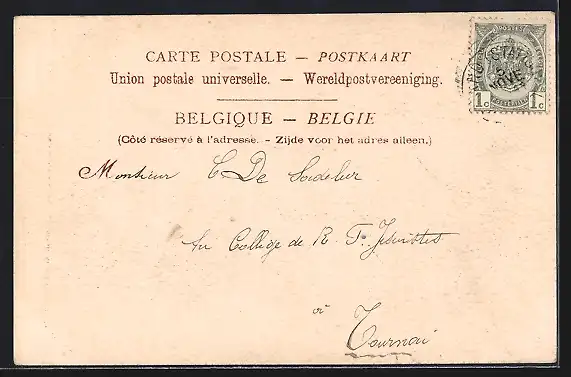 CARTE POSTALE – POSTKAART
Union postale universelle. – Wereldpostvereeniging.
BELGIQUE – BELGIE
(Côté réservé à l'adresse. – Zijde voor het adres alleen.)
Monsieur C De
au Collège de R. P. Jésuites
à
Tournai
1c 1c